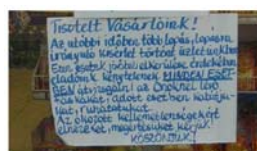 Tisztelt Vásárlóink!
Az utóbbi időben több lopás, lopásra
irányuló kísérlet történt üzletünkben
Ezen esetek jövőbeni elkerülése érdekében
eladóink kénytelenek MINDEN ESET-
BEN átvizsgálni az Önöknél lévő
táskákat, adott esetben kabátju-
kat, ruházatukat.
Az okozott kellemetlenségekért
elnézésüket, megértésüket kérjük!
KÖSZÖNJÜK!